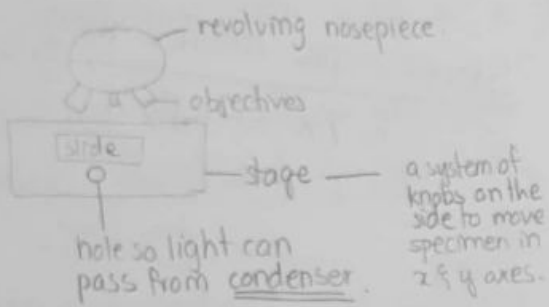 revolving nosepiece
objectives
slide
stage — a system of
knobs on the
side to move
specimen in
x & y axes.
hole so light can
pass from condenser.